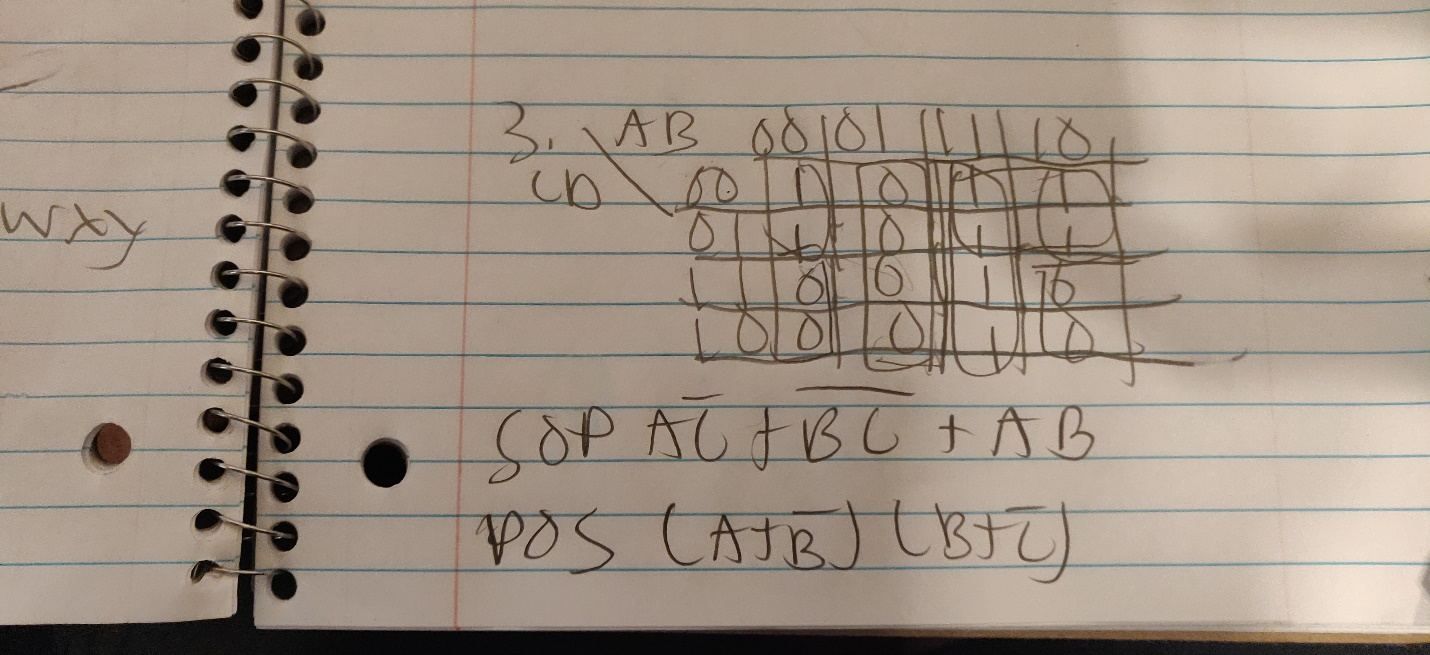 wxy
3. \ AB 00 01 11 10
CD 00 1 0 1 1
01 1 0 1 1
11 0 0 1 0
10 0 0 1 0
SOP AC̅ + B̅C̅ + AB
POS (A+B̅) (B+C̅)